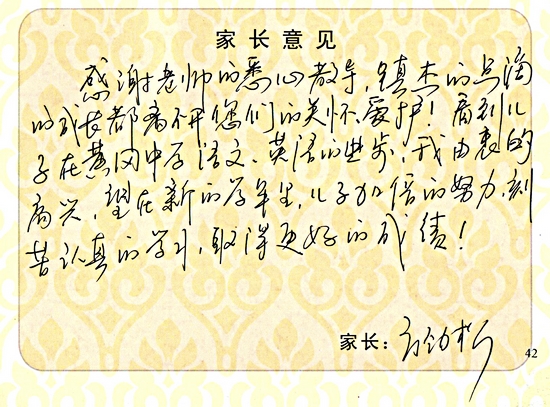 家长意见
感谢老师的悉心教导,镇杰的点滴
的成长都离不开您们的关怀、爱护！看到儿
子在黄冈中学语文、英语的进步,我由衷的
高兴,望在新的学年里,儿子加倍的努力,刻
苦认真的学习,取得更好的成绩！
家长:
42